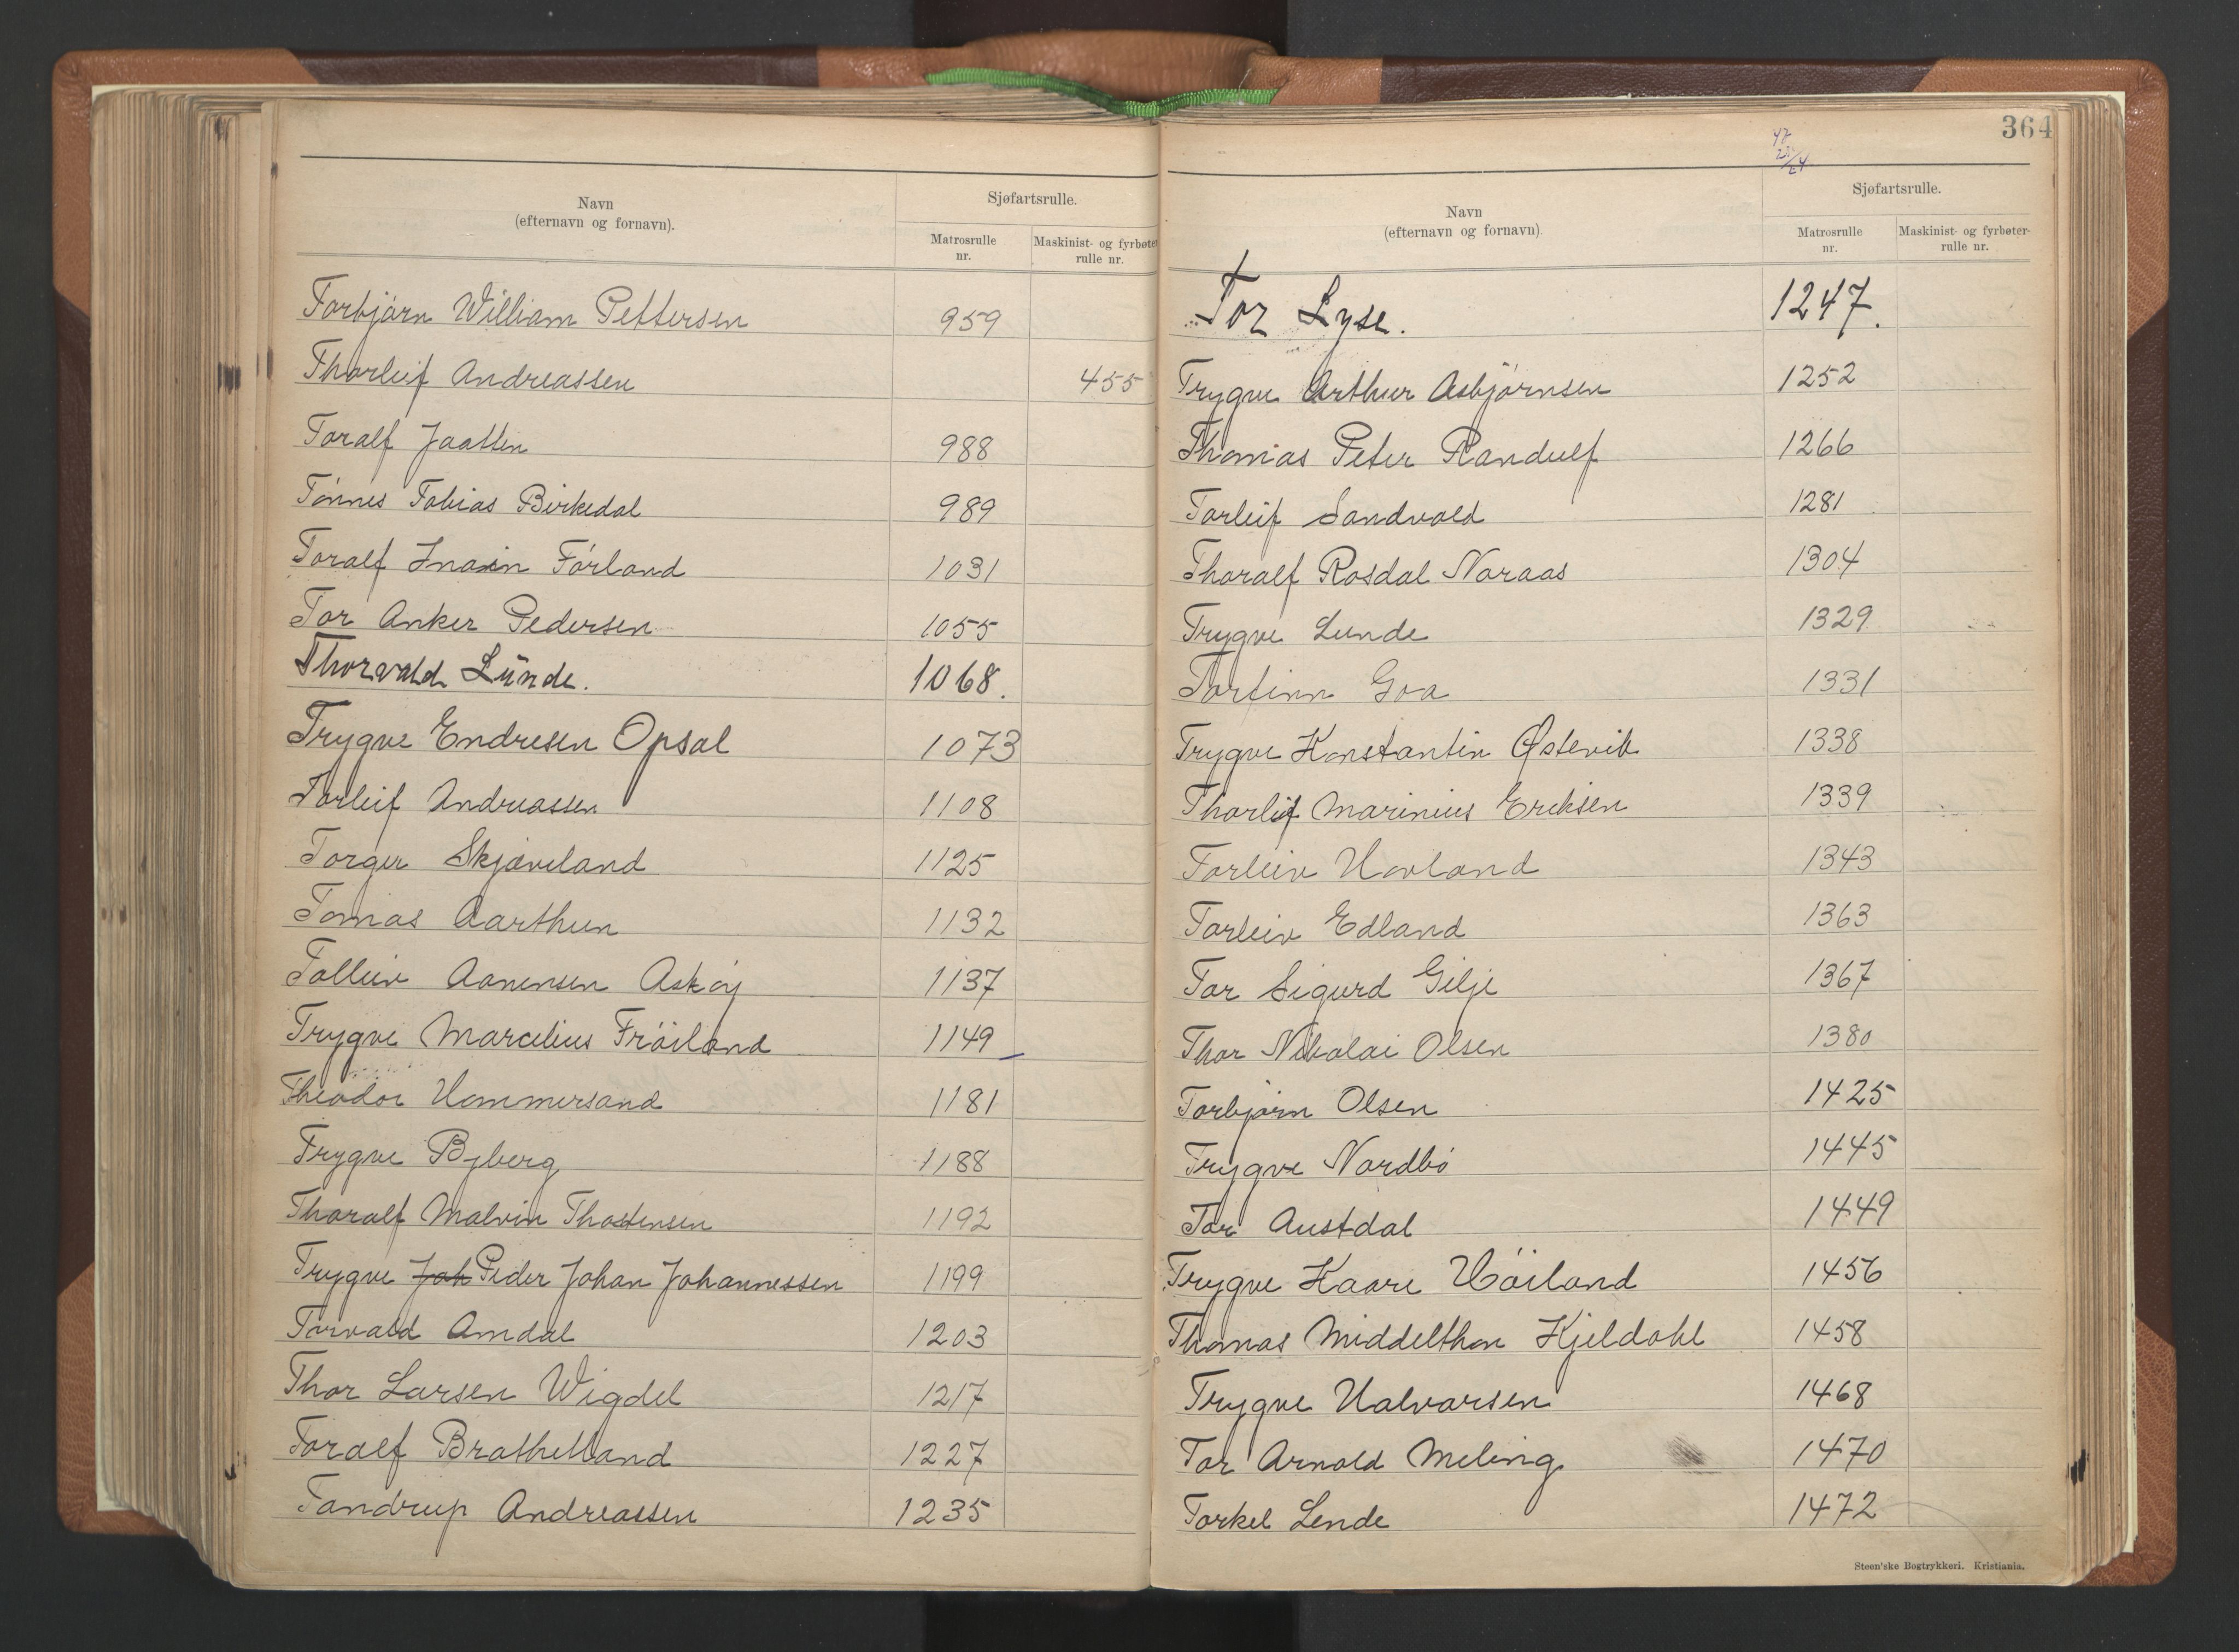 Navn
(efternavn og fornavn).
Sjøfartsrulle.
Matrosrulle
nr.
Maskinist- og fyrbøter
rulle nr.
Torbjørn William Pettersen 959
Thorleif Andreassen 455
Toralf Jaatten 988
Tønnes Tobias Birkedal 989
Toralf Førland 1031
Tor Anker Pedersen 1055
Thorvald Lünde. 1068.
Trygve Endresen Opsal 1073
Torleif Andreassen 1108
Torger Skjæveland 1125
Tomas Aarthun 1132
Tolleiv Aanensen Askøy 1137
Trygve Marcelius Frøiland 1149
Theodor Hommersand 1181
Trygve Byberg 1188
Tharalf Malvin Thostensen 1192
Trygve Joh Peder Johan Johannessen 1199
Torvald Amdal 1203
Thor Larsen Wigdel 1217
Toralf Brathetland 1227
Tandrup Andreassen 1235
364
Navn
(efternavn og fornavn).
Sjøfartsrulle.
Matrosrulle
nr.
Maskinist- og fyrbøter-
rulle nr.
Tor Lyse. 1247.
Trygve Arthur Asbjørnsen 1252
Thomas Peter Randulf 1266
Torleif Sandvold 1281
Tharalf Rosdal Noraas 1304
Trygve Lunde 1329
Torfinn Goa 1331
Trygve Konstantin Østevik 1338
Thorleif Marinius Eriksen 1339
Torleiv Hovland 1343
Torleiv Edland 1363
Tor Sigurd Gilje 1367
Thor Nikolai Olsen 1380
Torbjørn Olsen 1425
Trygve Nordbø 1445
Tor Austdal 1449
Trygve Kaare Høiland 1456
Thomas Middelthon Kjeldahl 1458
Trygve Halvarsen 1468
Tor Arnold Meling 1470
Torkel Lende 1472
Steen'ske Bogtrykkeri. Kristiania.